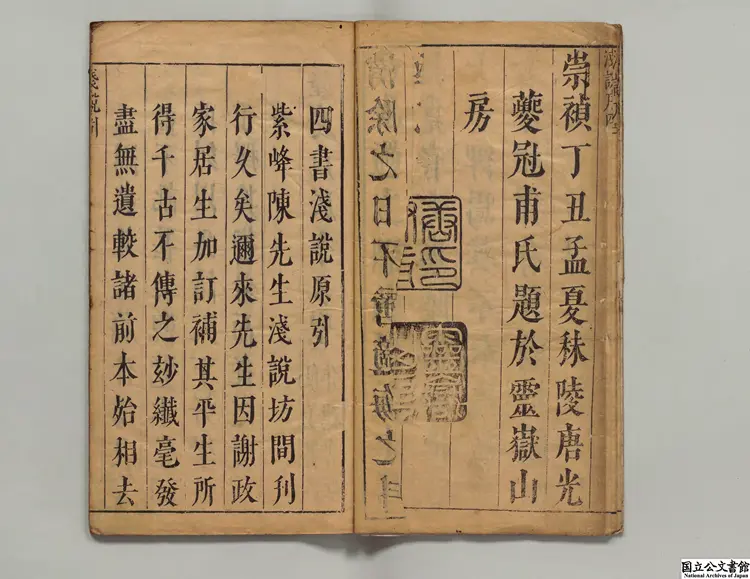 崇禎丁丑孟夏秣陵唐光
夔冠甫氏題於靈嶽山
房
四書淺說原引
紫峰陳先生淺說坊間刊
行久矣邇來先生因謝政
家居生加訂補其平生所
得千古不傳之玅纖毫發
盡無遺較諸前本始相去
淺說引
国立公文書館
National Archives of Japan